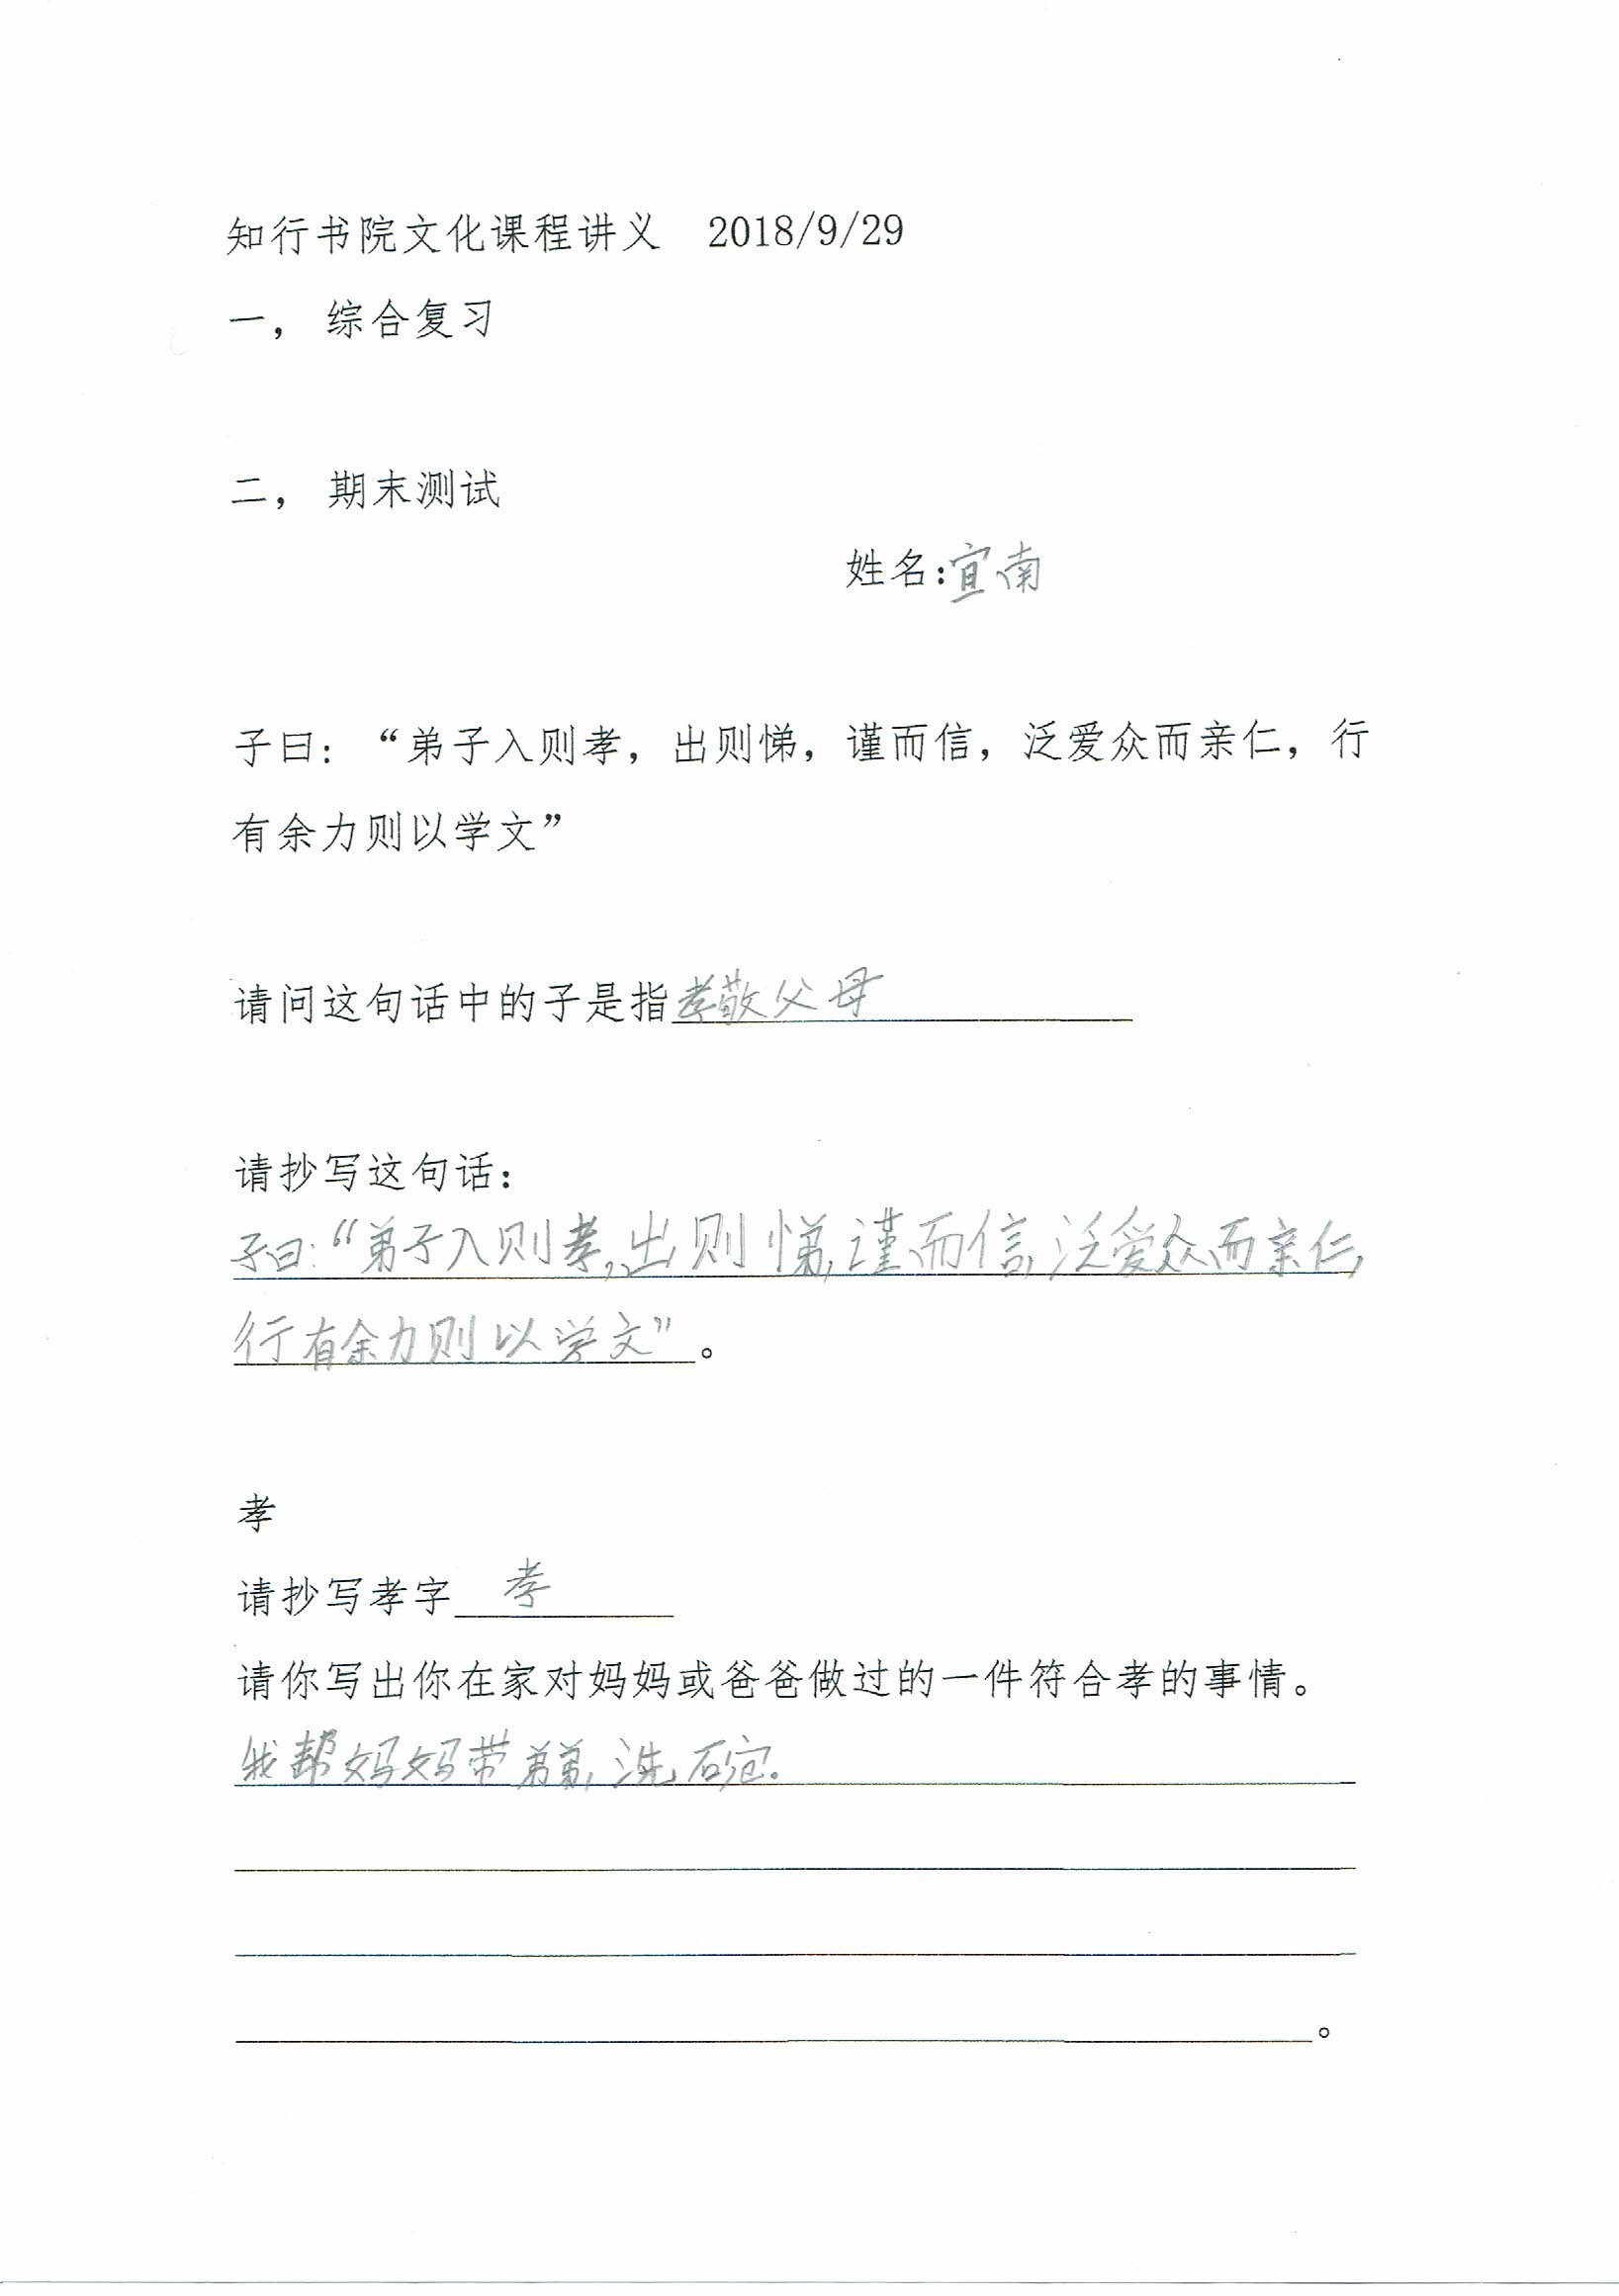 知行书院文化课程讲义 2018/9/29
一， 综合复习
二， 期末测试
姓名：宜南
子曰：“弟子入则孝，出则悌，谨而信，泛爱众而亲仁，行
有余力则以学文”
请问这句话中的子是指孝敬父母
请抄写这句话：
子曰：“弟子入则孝，出则悌，谨而信，泛爱众而亲仁，
行有余力则以学文”。
孝
请抄写孝字 孝
请你写出你在家对妈妈或爸爸做过的一件符合孝的事情。
我帮妈妈带弟弟，洗碗。
。